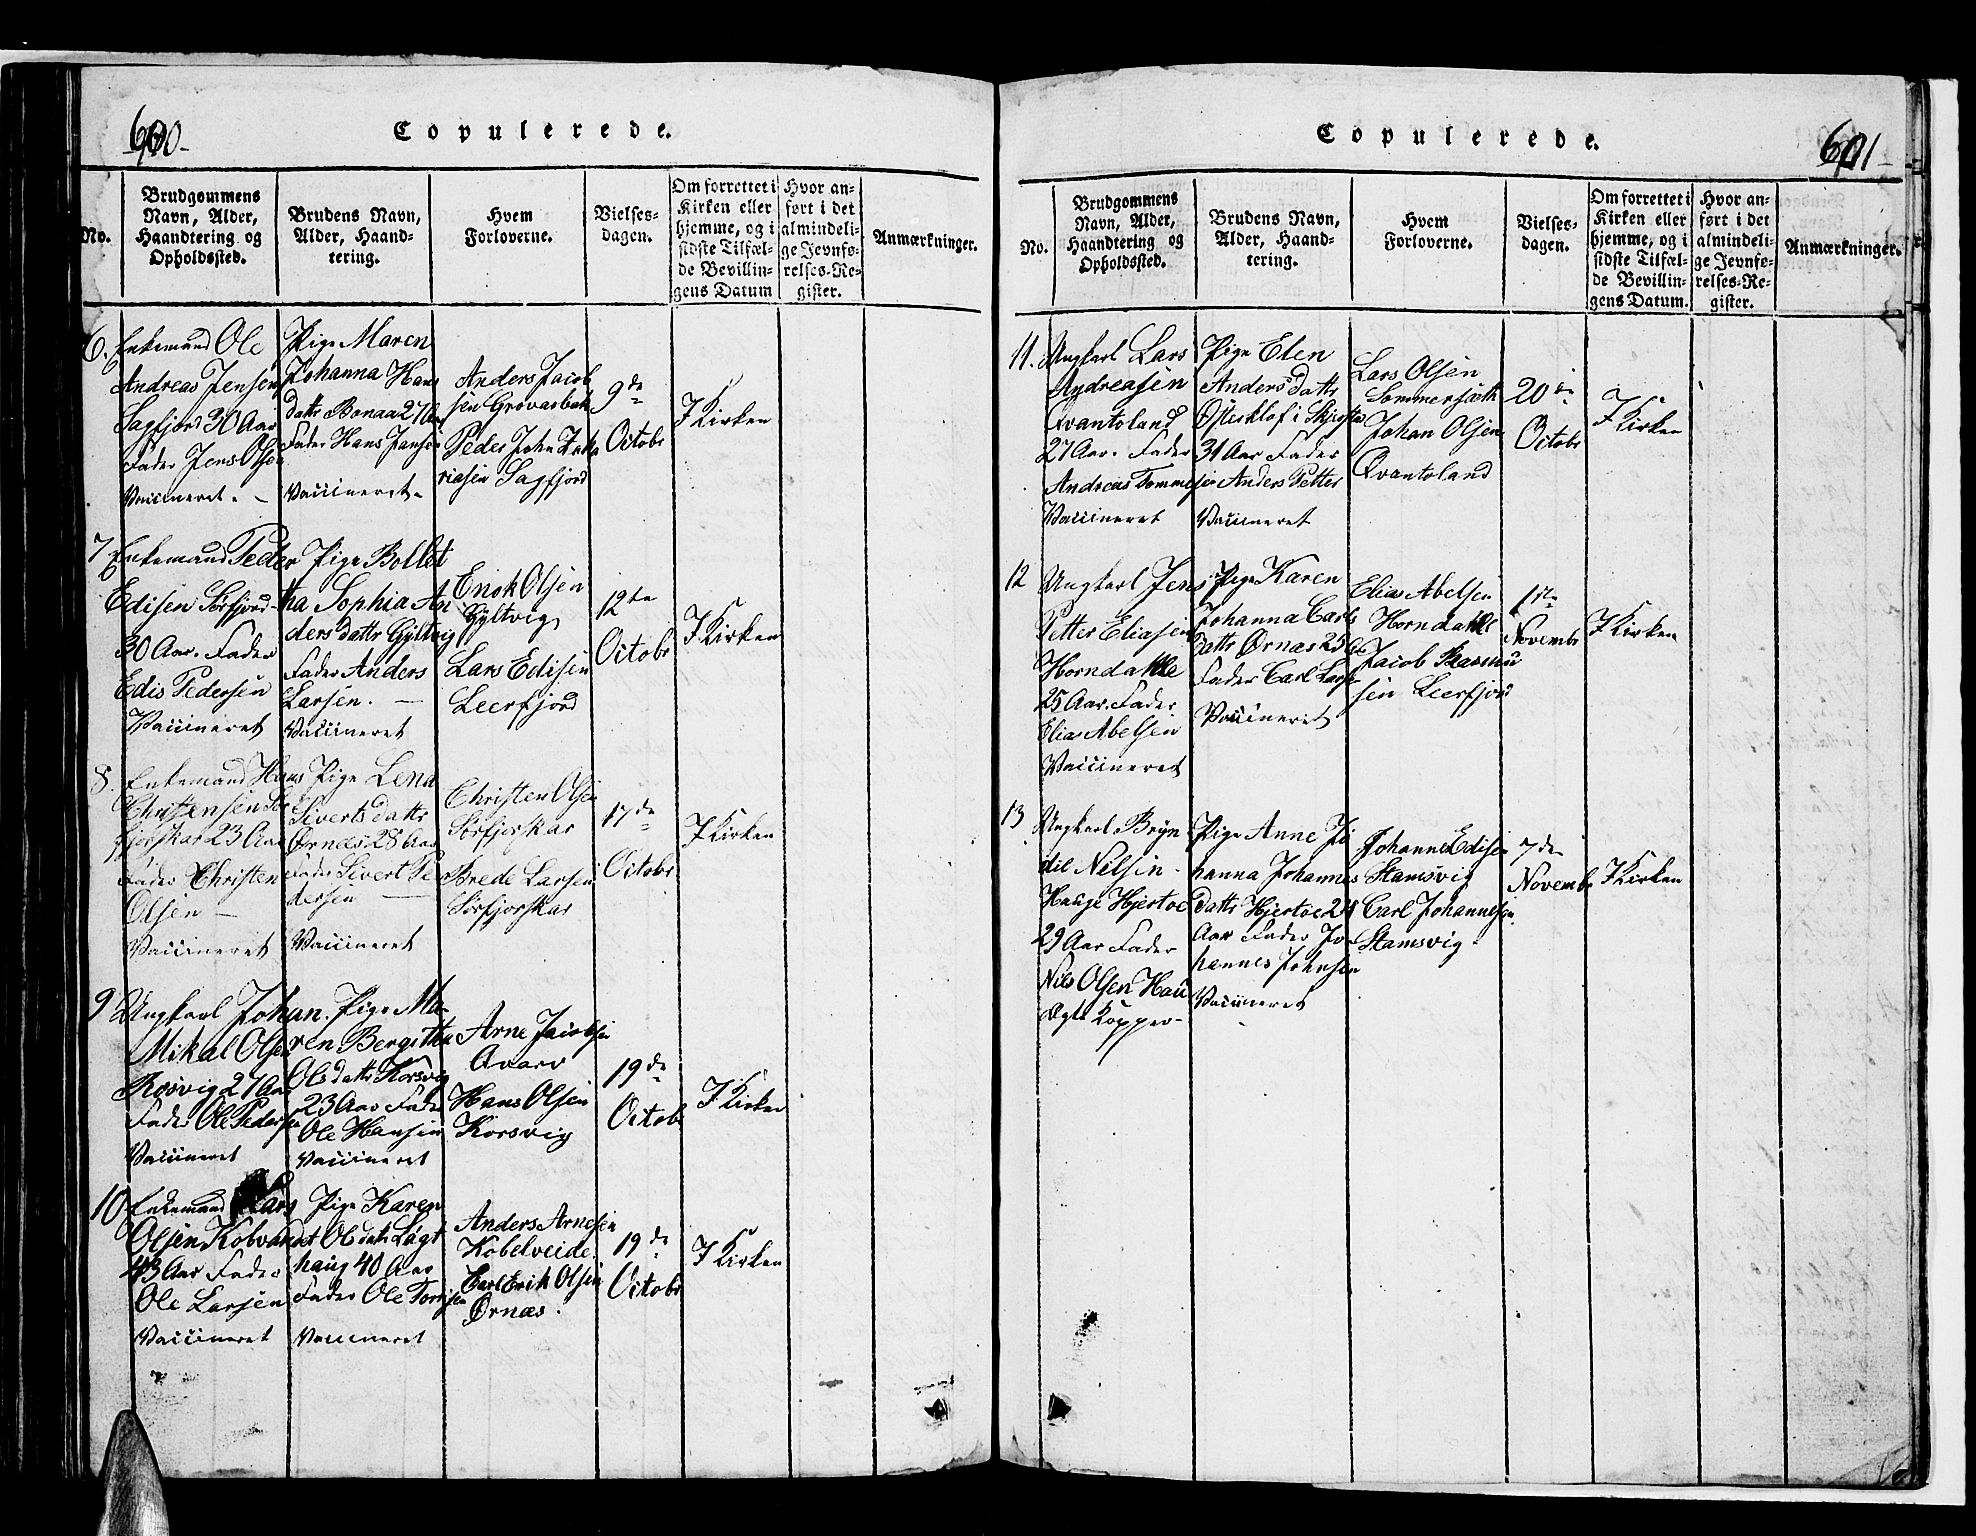 600
Copulerede.
No.
Brudgommens
Navn, Alder,
Haandtering og
Opholdssted.
Brudens Navn,
Alder, Haand-
tering.
Hvem
Forloverne.
Vielses-
dagen.
Om forrettet i
Kirken eller
hjemme, og i
sidste Tilfæl-
de Bevillin-
gens Datum
Hvor an-
ført i det
almindeli-
ge Jevnfø-
relses-Re-
gister.
Anmærkninger.
6.
Enkemand Ole
Andreas Jensen
Sagfjord 30 Aar
Fader Jens Olsen
Vaccineret.
Pige Maren
Johanna Hans
dattr Bonaa 27 Aar
Fader Hans Jansen
Vaccineret
Anders Jacob
sen Grovasbak
Peder John Zaka
riasen Sagfjord
9de
Octobr
I Kirken
7
Enkemand Peder
Edisen Sørfjord
30 Aar. Fader
Edis Pedersen
Vaccineret
Pige Bollet
ha Sophia An
ders dattr Gyltvig
Fader Anders
Larsen.
Vaccineret
Enok Olsen
Gyltvig
Lars Edisen
Leerfjord
12te
Octobr
I Kirken
8.
Enkemand Hans
Christensen Sør
fjorskar 23 Aar
Fader Christen
Olsen
Vaccineret
Pige Lena
Siverts dattr
Ørnæs 28 Aar
Fader Sivert Pe
dersen
Vaccineret
Christen Olsen
Sørfjorskar
Brede Larsen
Sørfjorskar
17de
Octobr
I Kirken
9
Ungkarl Johan
Mikal Olsen
Rosvig 27 Aar
Fader Ole Pedersen
Vaccineret
Pige Ma-
ren Bergitha
Ols dattr Korsvig
23 Aar Fader
Ole Hansen
Vaccineret
Arne Jacobsen
Avarv
Hans Olsen
Korsvig
19de
Octob
I Kirken
10
Enkemand Lars
Olsen Kobvandet
43 Aar Fader
Ole Larsen
Vaccineret
Pige Karen
Ols datr Løgt
haug 40 Aar
Fader Ole Torrisen
Vaccineret
Anders Arnesen
Kobelveide
Carl Erik Olsen
Ørnæs.
19de
Octobr
I Kirken
Copulerede.
601
No.
Brudgommens
Navn, Alder,
Haandtering og
Opholdssted.
Brudens Navn,
Alder, Haand-
tering.
Hvem
Forloverne.
Vielses-
dagen.
Om forrettet i
Kirken eller
hjemme, og i
sidste Tilfæl-
de Bevillin-
gens Datum.
Hvor an-
ført i det
almindeli-
ge Jevnfø-
relses-Re-
gister.
Anmærkninger.
11.
Ungkarl Lars
Andreasen
Qvantoland
27 Aar. Fader
Andreas Tommesen
Vaccineret
Pige Elen
Anders dattr
Østerklof i Skjerstad
31 Aar Fader
Anders Petter
Vaccineret
Lars Olsen
Sommersæth
Johan Olsen
Qvantoland
20de
Octobr
I Kirken
12
Ungkarl Jens
Petter Eliasen
Horndahle
25 Aar. Fader
Elias Abelsen
Vaccineret
Pige Karen
Johanna Carls
dattr Ørnæs 25 Aar
Fader Carl Larsen
Vaccineret
Elias Abelsen
Horndahle
Jacob Rasmu
sen Leerfjord
1ste
Novembr
I Kirken
13
Ungkarl Bryn
dil Nilsen
Hauge Hjertøe
29 Aar Fader
Nils Olsen Hau
Ægte Kopper
Pige Anne Jo
hanna Johannes
datts Hjertøe 24
Aar Fader Jo
hannes Johnsen
Vaccineret
Johannes Edisen
Stamsvig
Carl Johannesen
Stamsvig
7de
Novembr
I Kirken